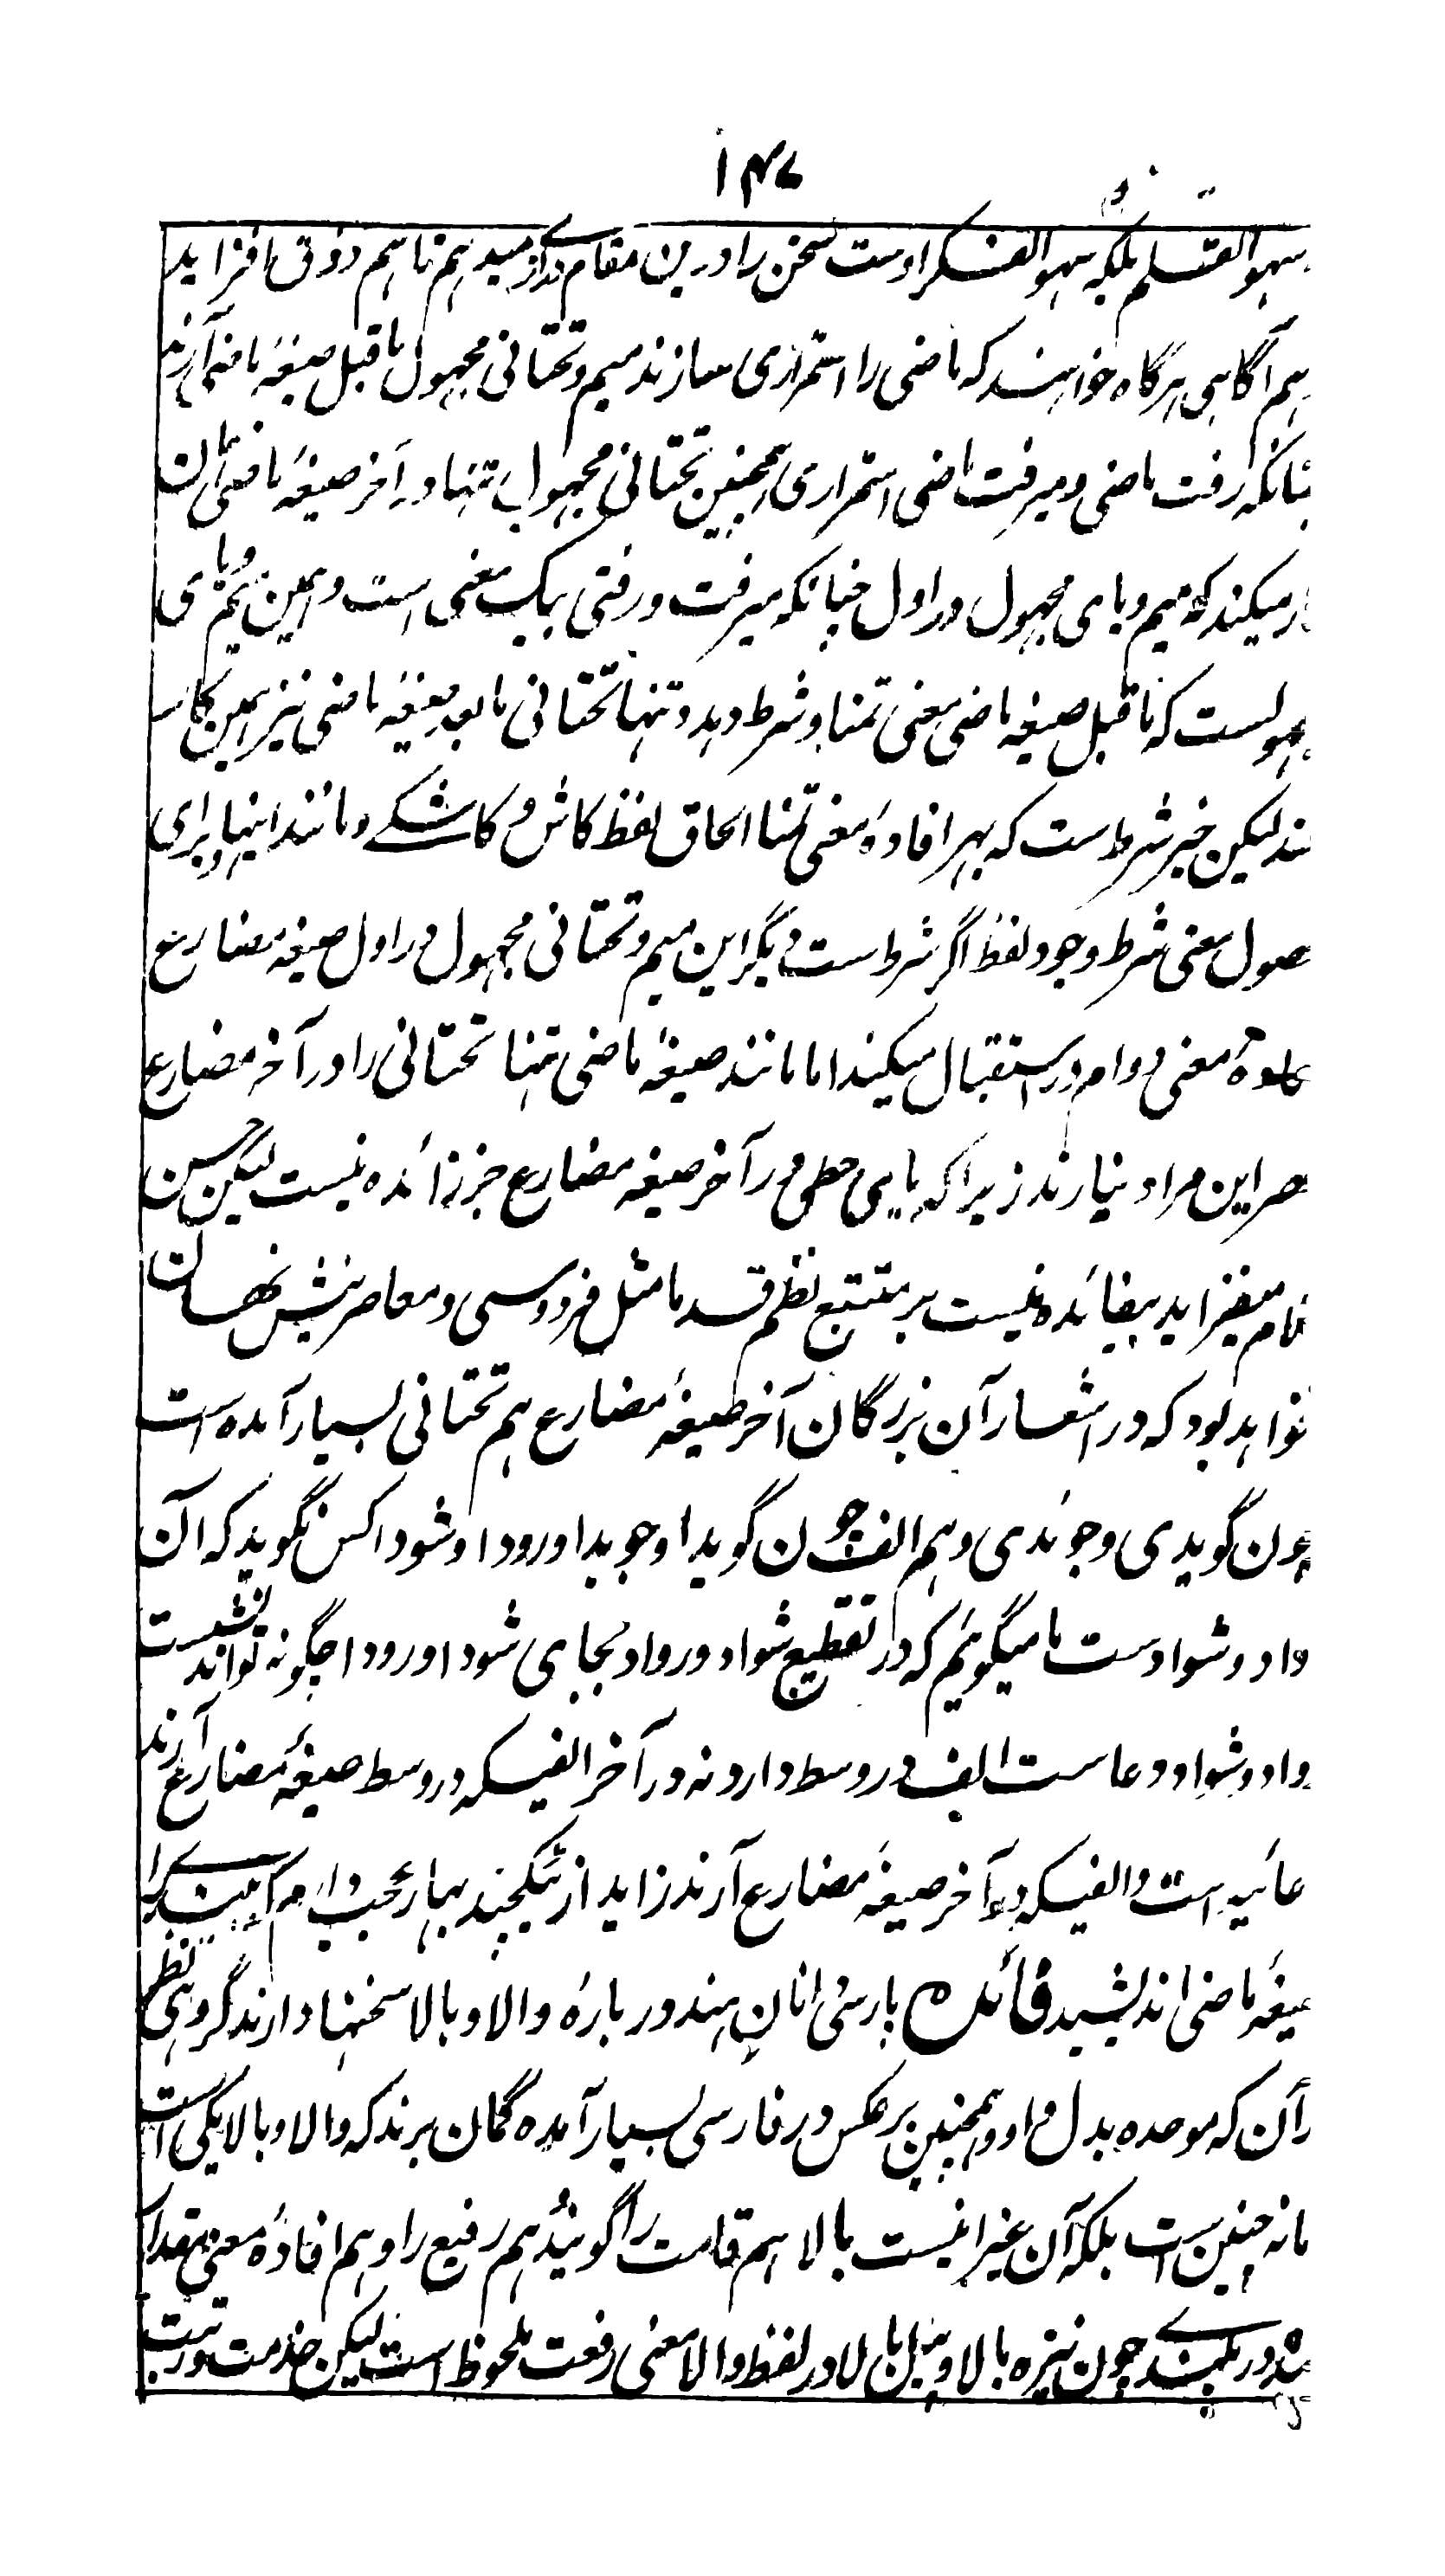 ۱۴۷
سهوالقلم بلکه سهوالفکر اوست سخن را درین مقام درازی میدهم تا هم ذوقی افزاید
هم آگاهی هرگاه خواهند که ماضی را استمراری سازند میم و تحتانی مجهول ماقبل صیغهٔ ماضی آرند
رفت ماضی و میرفت ماضی استمراری همچنین تحتانی مجهول تنها در آخر صیغهٔ ماضی
میکند که میم و یای مجهول در اول چنانکه میرفت و رفتی بیک معنی است و همین میم و یای
که ماقبل صیغهٔ ماضی معنی تمنا و شرط دهد و تنها تحتانی مابعد صیغهٔ ماضی نیز همین کار
لیکن خبر شرط ست که بهر افادهٔ معنی تمنا الحاق لفظ کاش و کاشکے و مانند اینها و برای
معنی شرط وجود لفظ اگر شرط است دیگر این میم و تحتانی مجهول در اول صیغه مضارع
معنی دوام در استقبال میکند اما مانند صیغهٔ ماضی تنها تحتانی را در آخر مضارع
این مراد نیارند زیرا که یای حطی در آخر صیغه مضارع جز زائده نیست لیکن حسن
میفزاید بیفائده نیست بر متتبع نظم قدما مثل فردوسی و معاصرینش نهان
نخواهد بود که در اشعار آن بزرگان آخر صیغهٔ مضارع هم تحتانی بسیار آمده است
چون گویدی و جویدی و هم الف چون گویدا و جویدا و رودا و شودا کس نگوید که آن
رواد و شواد ست ما میگوئیم که در تقطیع شواد و رواد بجای شودا و رودا چگونه تواند نشست
رواد و شواد دعا ست الف در وسط دارد نه در آخر الفیکه در وسط صیغهٔ مضارع آرند
دعائیه است و الفیکه در آخر صیغهٔ مضارع آرند زاید از ٹیکچند بهار عجب دارم که
صیغهٔ ماضی اندیشید فائده پارسی دانان هند در بارهٔ والا و بالا سخنها دارند گروهی نظر
بر آن که موحده بدل واو و همچنین برعکس در فارسی بسیار آمده گمان برند که والا و بالا یکی است
اما نه چنین ست بلکه آن غیر اینست بالا هم قامت را گویند هم رفیع را و هم افادهٔ معنی مقدار
دهد در بلندی چون نیزه بالا و پیل بالا در لفظ والا معنی رفعت ملحوظ است لیکن خدمت و رتبت